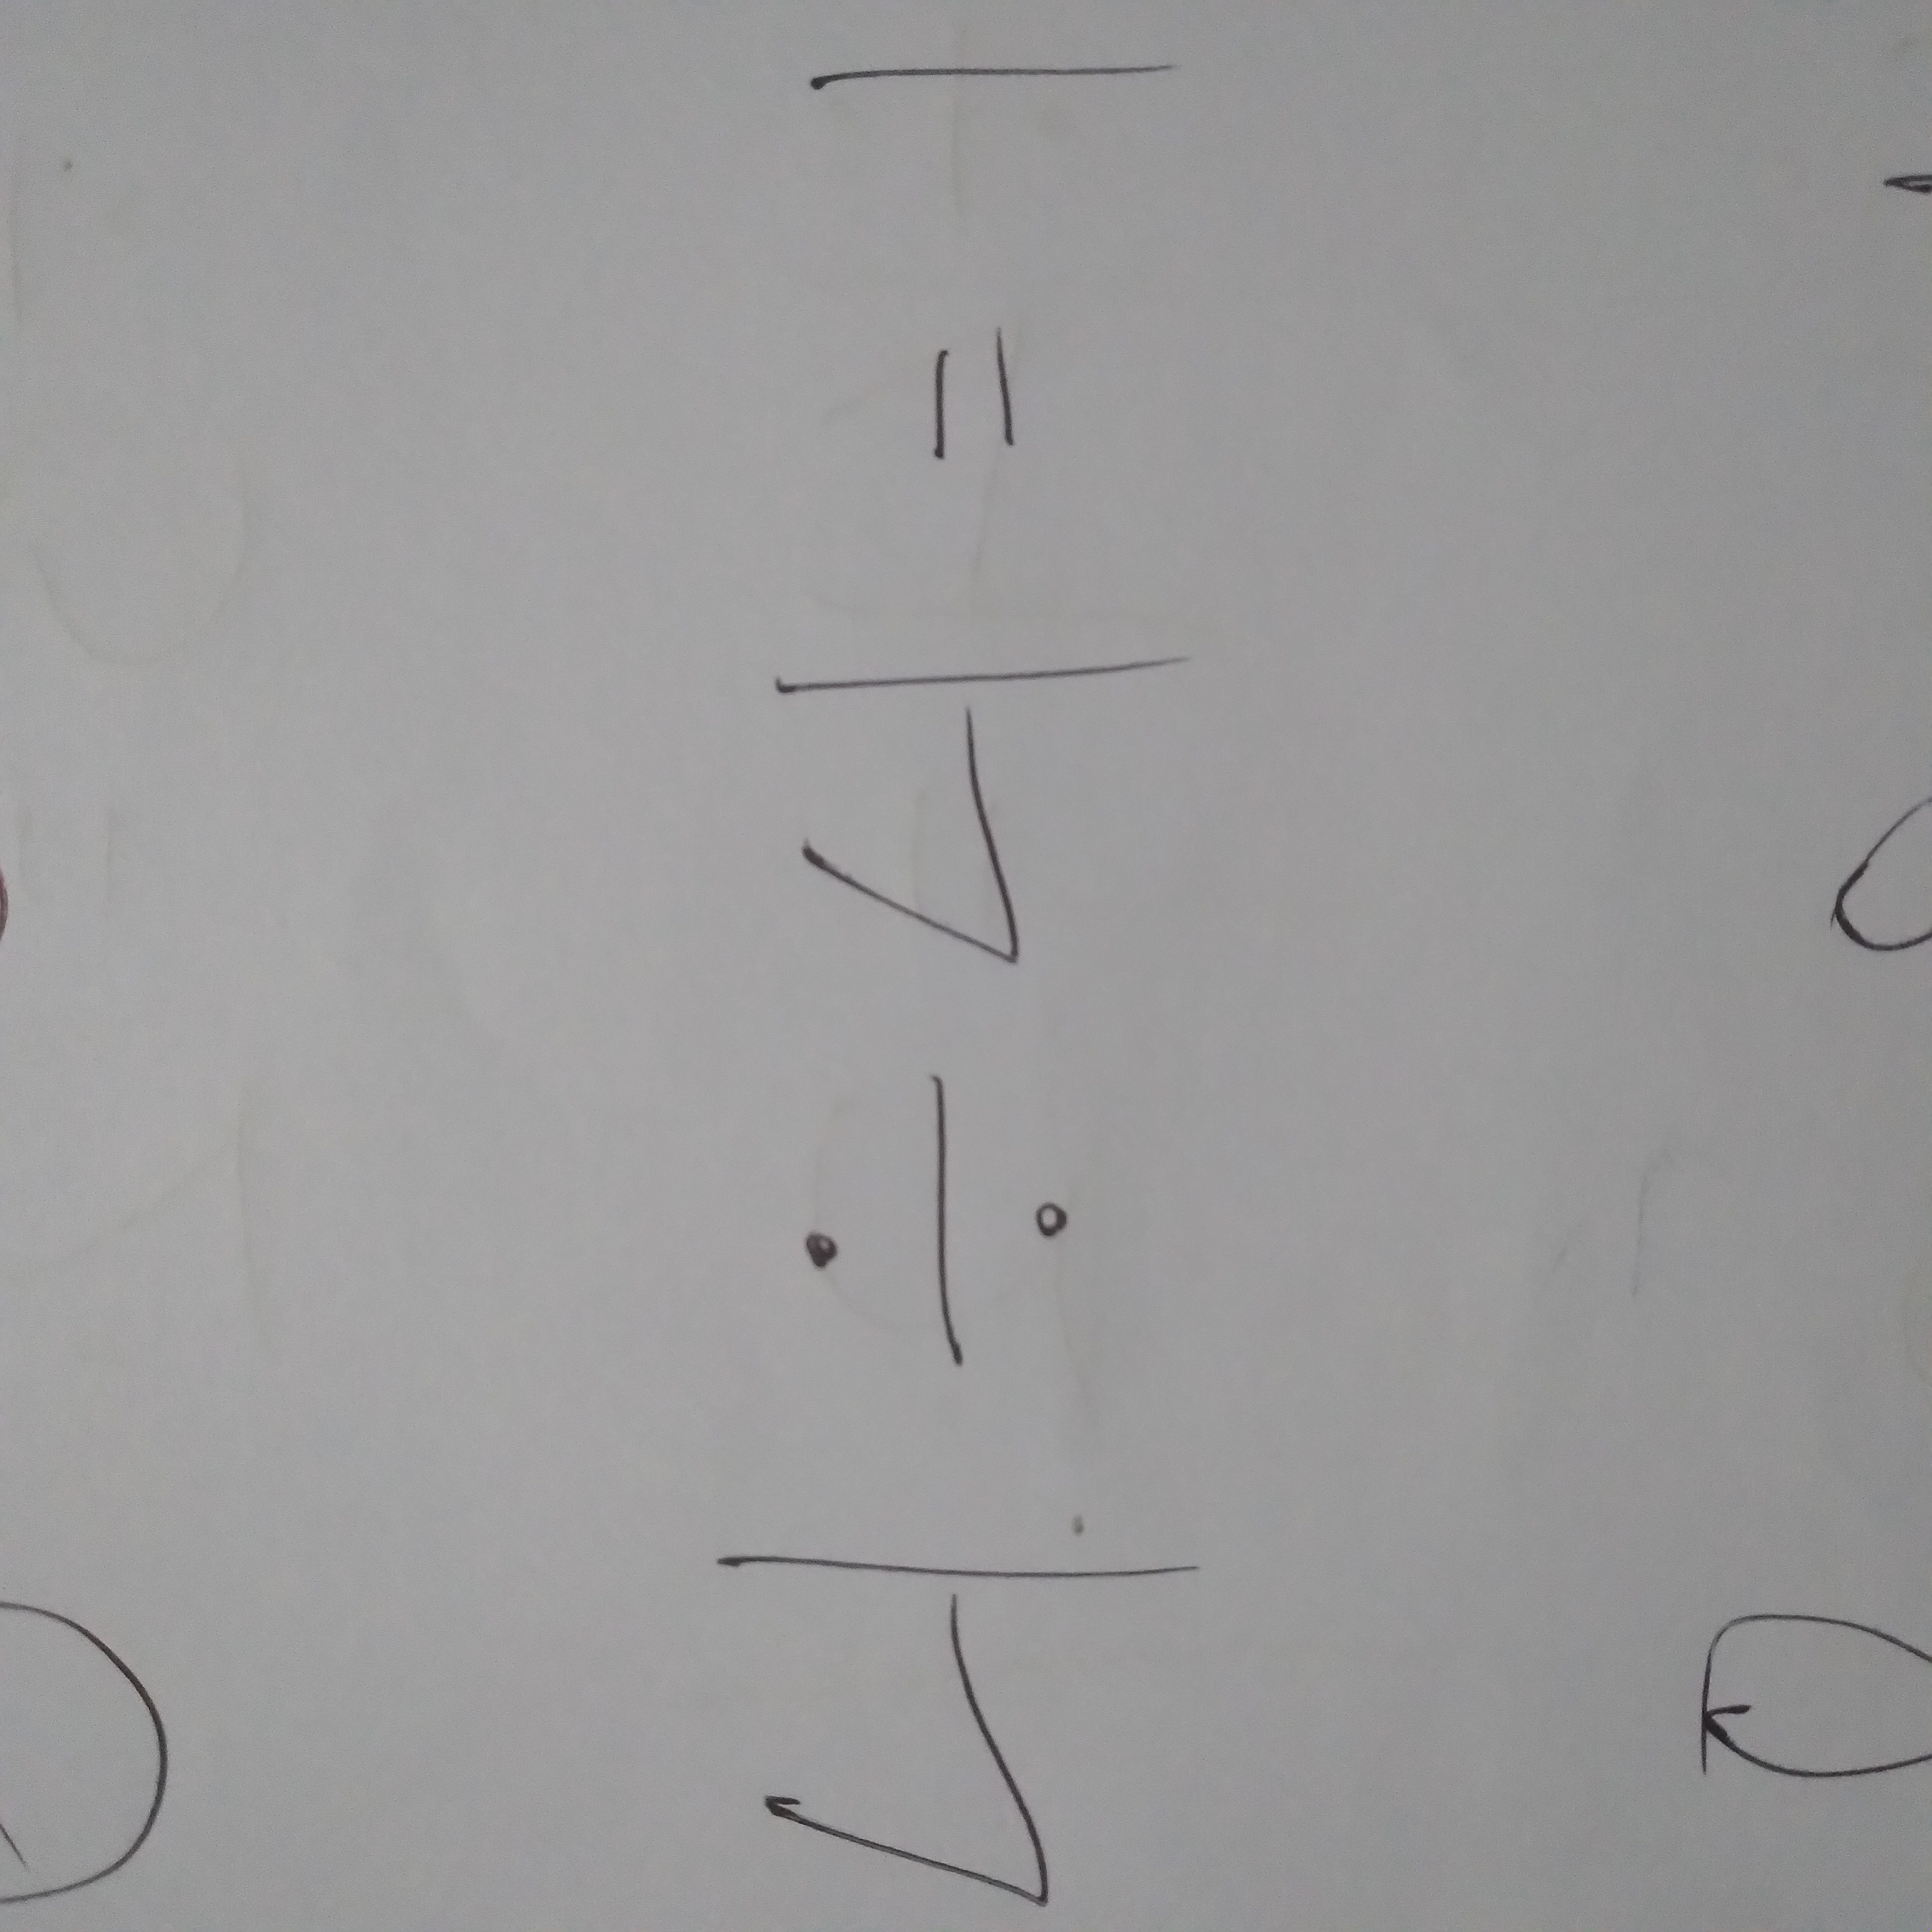 4 ÷ 4 = 1